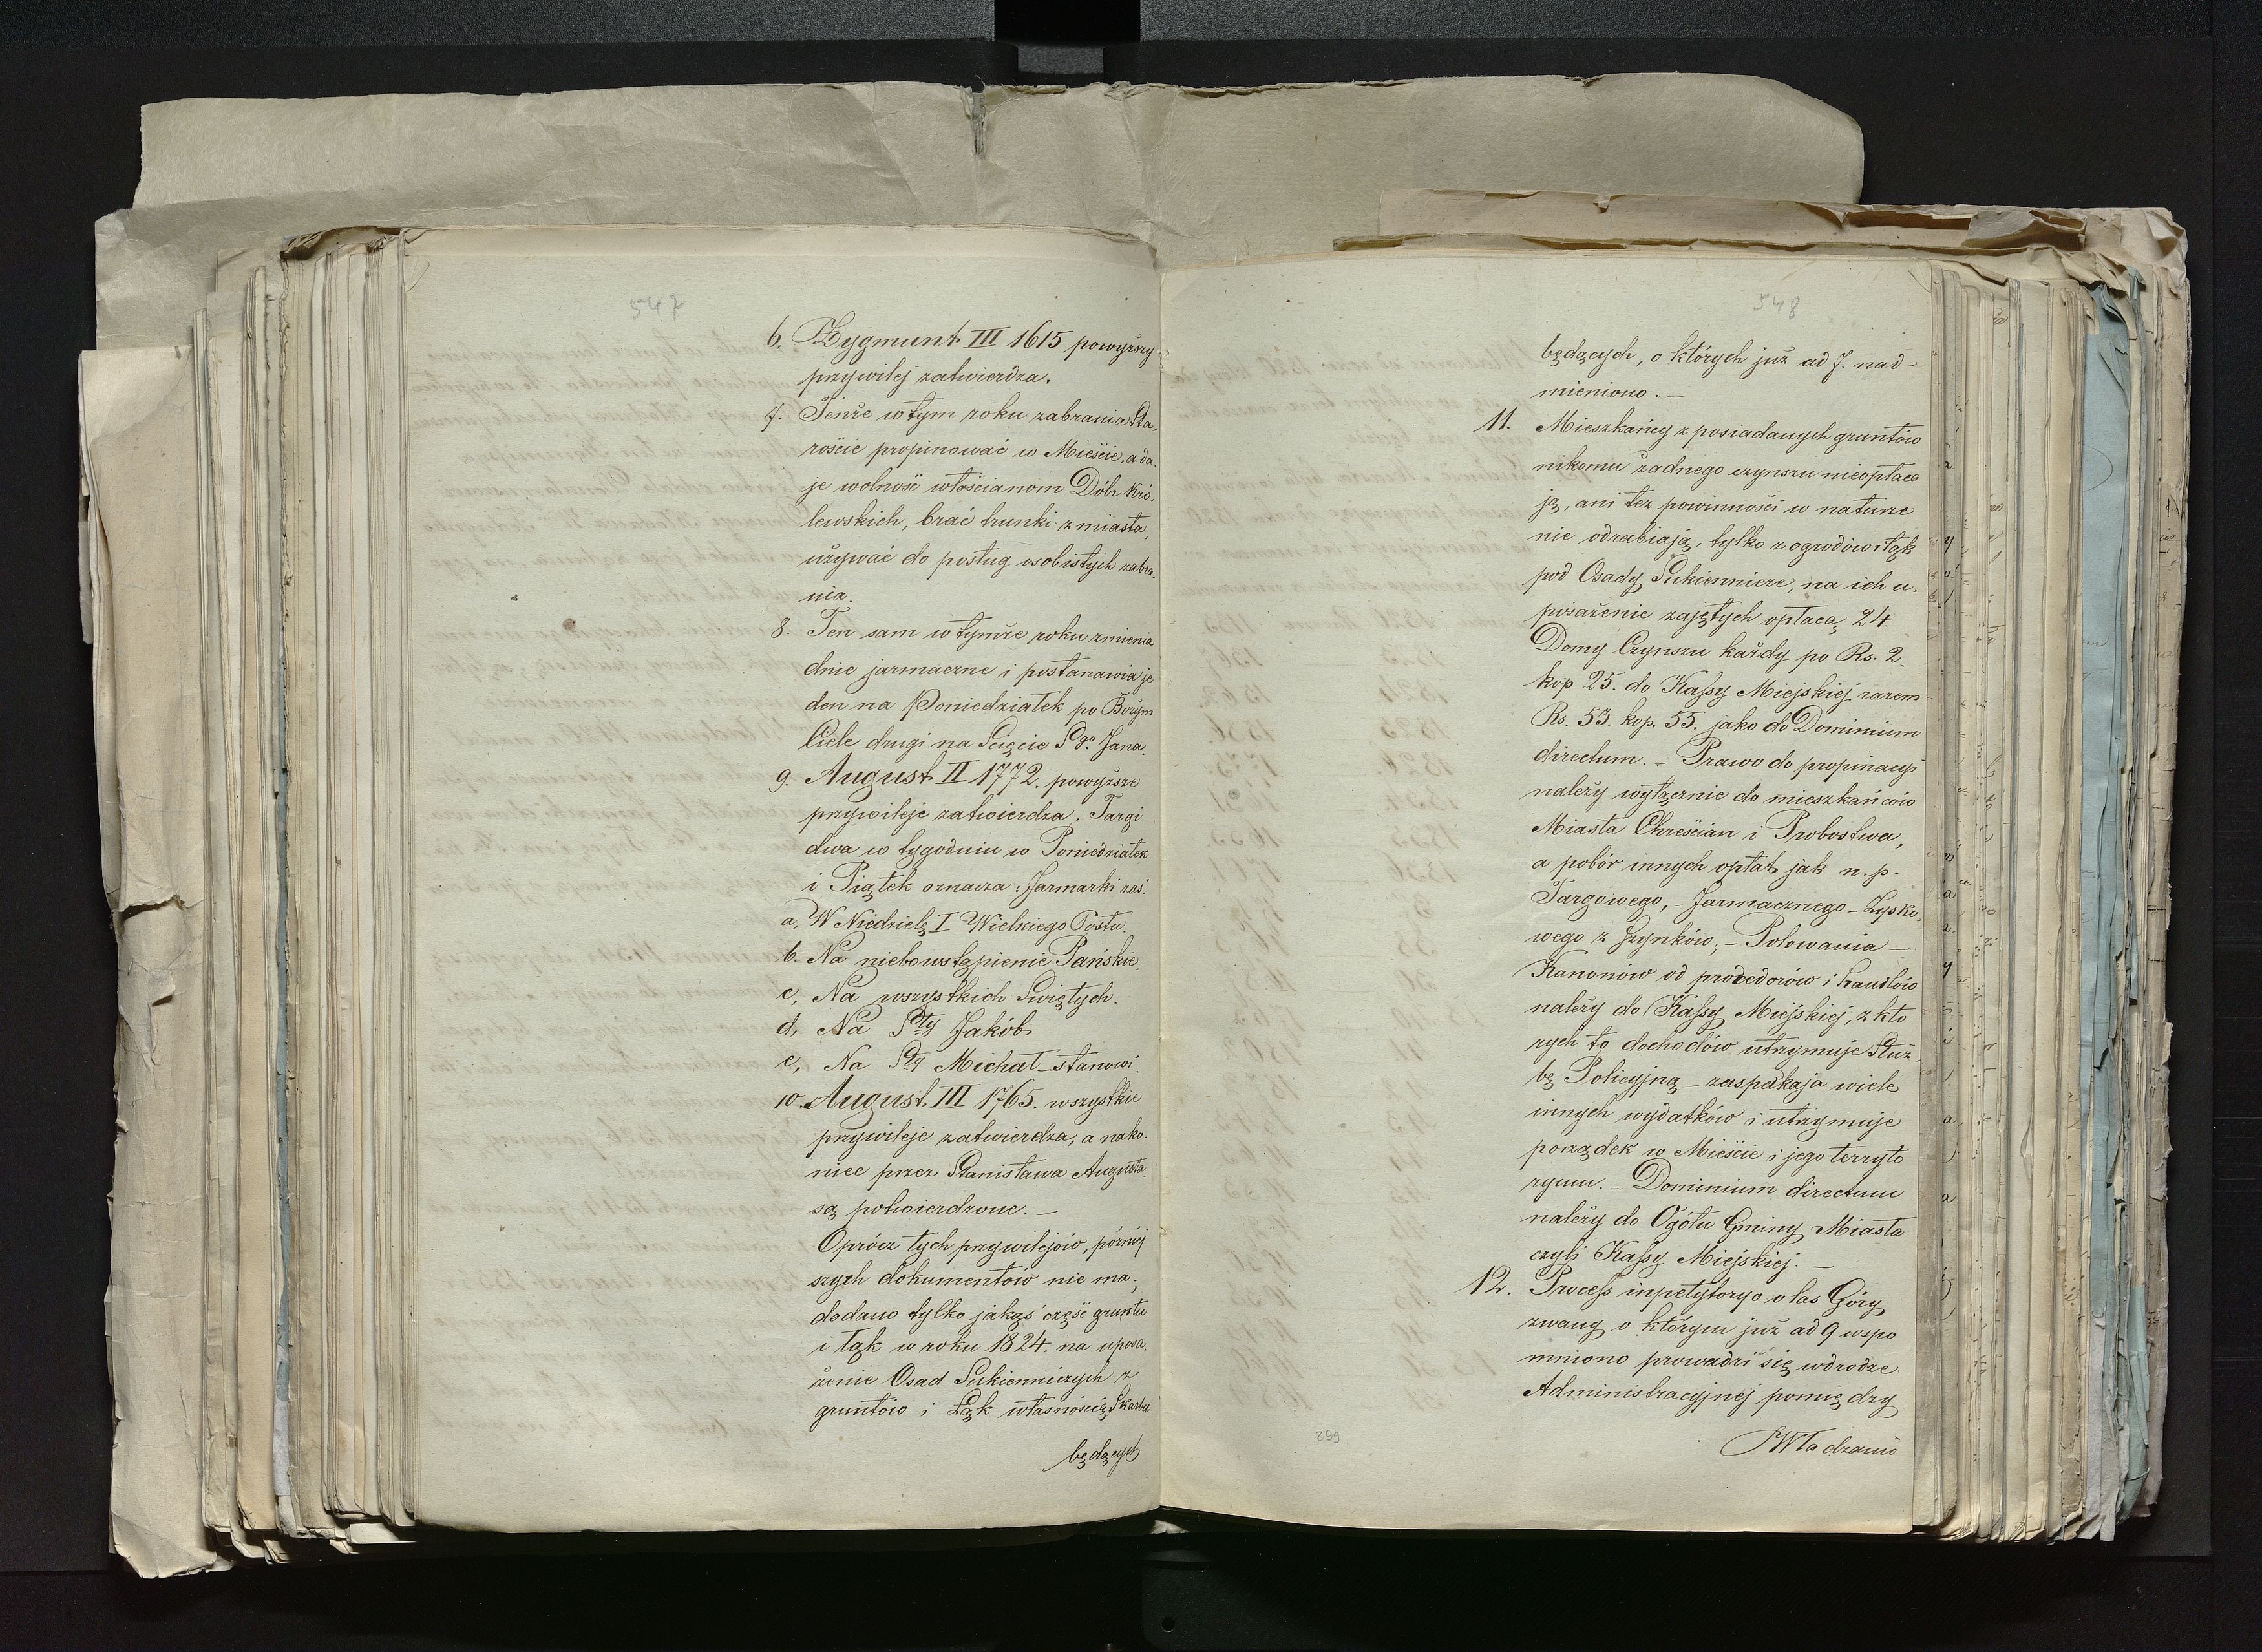 547
6. Zygmunt III 1615 powyższy
przywilej zatwierdza.
7. Tenże w tym roku zabrania Sta,
roście propinować w Mieście, a da.
je wolność włościanom Dóbr Kró.
lewskich, brać trunki z miasta,
używać do posług osobistych zabra.
nia.
8. Ten sam w tymże roku zmienia
dnie jarmaczne i postanawia je
den na Poniedziałek po Bożym
Ciele drugi na Scięcie Sgo Jana.
9. August II 1772. powyższe
przywileje zatwierdza. Targi
dwa w tygodniu w Poniedziałek
i Piątek oznacza: Jarmarki zaś:
a, W Niedzielę I Wielkiego Postu.
b. Na niebowstąpienie Pańskie.
c, Na wszystkich Swiętych.
d, Na Sty Jakób
e, Na Sty Michał stanowi.
10. August III 1765. wszystkie
przywileje zatwierdza, a nako.
niec przez Stanisława Augusta
są potwierdzone. —
Oprócz tych przywilejów, póżniej
szych dokumentów nie ma;
dodano tylko jakąś część gruntu
i łąk w roku 1824. na uposa.
żenie Osad Sukienniczych z
gruntów i Łąk własnością Skarbu
będących
548
będących, o których już ad 7. nad-
mieniono. —
11. Mieszkańcy z posiadanych gruntów
nikomu żadnego czynszu nieopłaca
ją, ani też powinności w naturze
nie odrabiają, tylko z ogrodów i łąk
pod Osady Sukiennicze, na ich u.
posażenie zajętych opłaca 24.
Domy Czynszu każdy po Rs. 2.
kop 25. do Kassy Miejskiej razem
Rs. 53. kop. 55. jako do Dominium
directum. — Prawo do propinacyi
należy wyłącznie do mieszkańców
Miasta Chreścian i Probostwa,
a pobór innych opłat jak n. p.
Targowego, — Jarmacznego — Zysko,
wego z szynków, — Polowania —
Kanonów od procederów i handlów
należy do Kassy Miejskiej, z któ
rych to dochodów utrzymuje Służ-
bę Policyjną — zaspakaja wiele
innych wydatków i utrzymuje
porządek w Mieście i jego terryto
ryum. — Dominium directum
należy do Ogółu Gminy Miasta
czyli Kassy Miejskiej. —
12. Process inpetytoryo o las Góry
zwany o którym już ad 9 wspo
mniono prowadzi się w drodze
Administracyjnej pomiędzy
Władzami
299